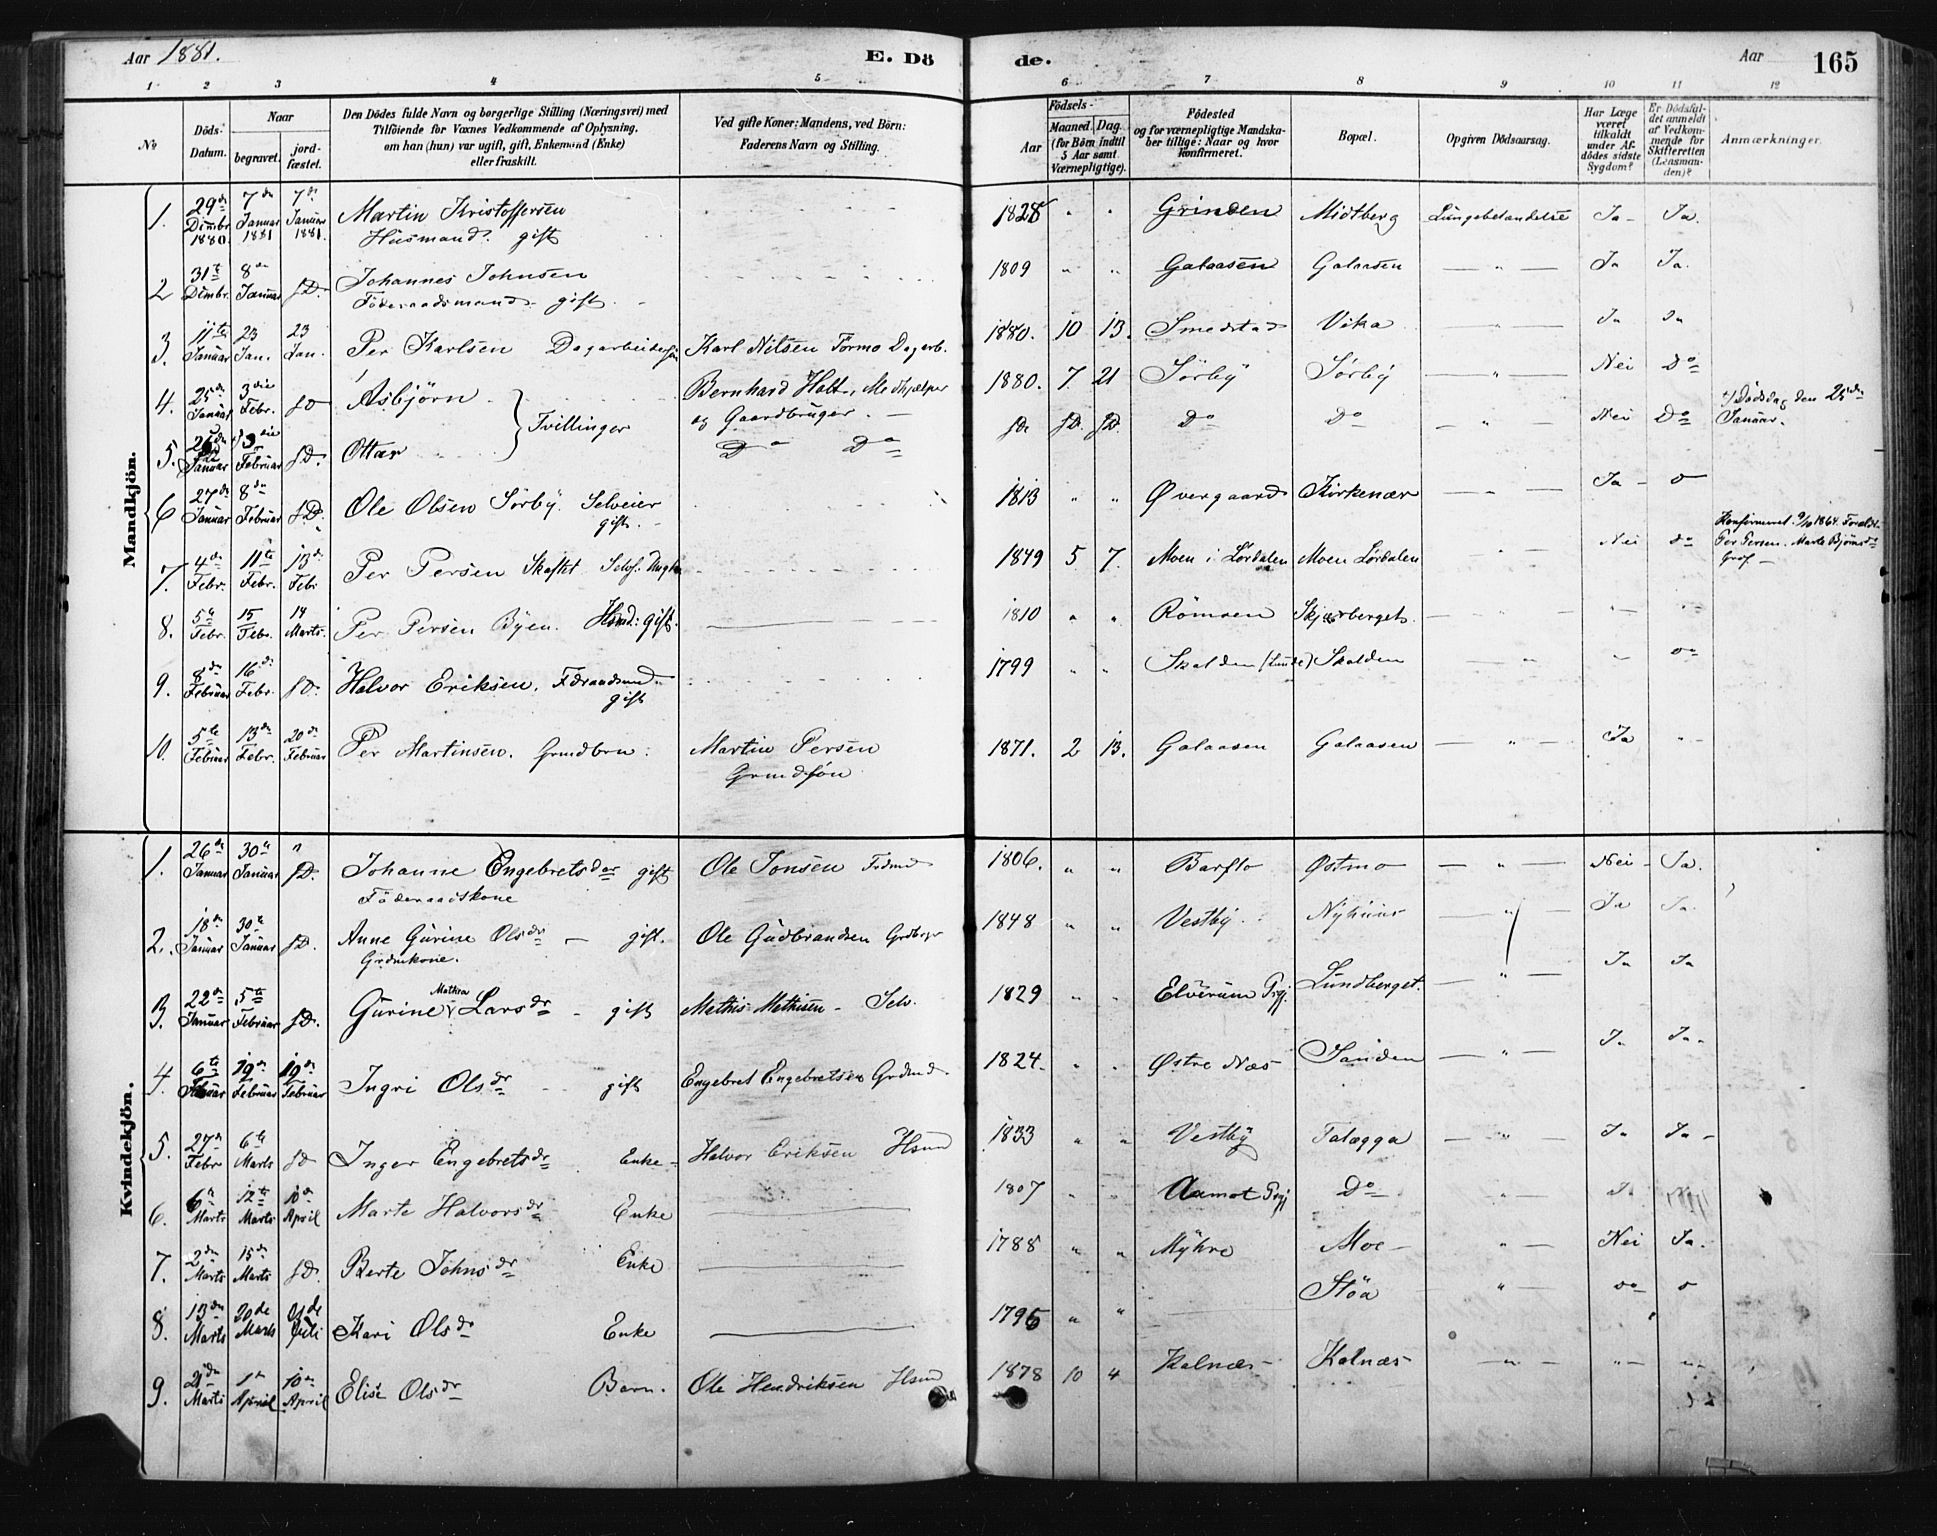 Aar 1881.
E. Dö
de.
Aar
165
1 2 3 4 5 6 7 8 9 10 11 12
No
Döds-Datum.
Naar
begravet.
jord-fæstet.
Den Dödes fulde Navn og borgerlige Stilling (Næringsvei) med
Tilföiende for Voxnes Vedkommende af Oplysning,
om han (hun) var ugift, gift, Enkemand (Enke)
eller fraskilt.
Ved gifte Koner: Mandens, ved Börn:
Faderens Navn og Stilling.
Födsels-
Aar
Maaned. Dag.
(for Börn indtil
5 Aar samt
Værnepligtige).
Födested
og for værnepligtige Mandska-
ber tillige: Naar og hvor
konfirmeret.
Bopæl.
Opgiven Dödsaarsag.
Har Læge
været
tilkaldt
under Af-
dödes sidste
Sygdom?
Er Dödsfal-
det anmeldt
af Vedkom-
mende for
Skifteretten
(Lensman-
den)?
Anmærkninger.
Mandkjön.
1. 29de Dcmbr. 1880. 7de Januar 1881 7de Januar 1881. Martin Kristoffersen 1828 " " Grinden Midtberg Lungebetændelse Ja Ja.
Husmand. gift
2 31te Dcmbr. 8de Januar D. Johannes Johnsen 1809 " " Galaasen Galaasen — " — Ja Ja.
Föderaadsmand gift
3. 11te Januar 23 Jan. 23 Jan. Per Karlsen Dagarbeider Karl Nilsen Tormo Dagarb. 1880. 10 13. Smedstad Vika " Ja Ja
4. 25de Januar 3die Febr. D Asbjörn Bernhard Holt, Medhjælper 1880. 7 21 Sörby Sörby — " — Nei Do
Tvillinger og Gaardbruger. —
5. Januar 3die Februar D. Ottar Do Do D. D. Do Do — " — Nei Do Dödsdag den 25de
Januar.
6 27de Januar 8de Februar D. Ole Olsen Sörby. Selveier 1813 " " Øvergaard Kirkenær — " — Ja
gift.
7. 4de Febr. 11te Febr. 13de Febr Per Persen Skaftet 1849 5 7. Moen i Lördalen Moen Lördalen " Nei do Konfirmeret 9/10 1864. Foræld.
Per Persen. Marte Björnsd
8. 5te Febr. 15 Febr. 14 Marts. Per Persen Byen. Hsmd: gift. 1810 " " Römoen Skjærberget. — " —
9. 8de Februar 16de Febr. D. Halvor Eriksen. 1799 " " Skalden (Lunde) Skalden — " —
gift
10. 5te Februar 13de Febr. 20de Februar Per Martinsen. Martin Persen 1871. 2 13. Galaasen Galaasen — " — Ja "
Kvindekjön.
1. 26de Januar 30te Januar D. Johanne Engebretsdr gift Ole Jonsen 1806. " " Barflo Østmo — " — Nei Ja.
Föderaadskone
2. 18de Januar 30te Januar D. Anne Gurine Olsdr — gift. Ole Gudbrandsen 1848 " " Vestby. Nyhuus " Ja Ja.
Grdmkone.
3. 22de Januar 5te Februar D. Gurine Mathea Larsdr gift Mathis Mathisen Selv. 1829 " " Elverum Prgj. Lundberget. — " — Ja Ja
4. 6te Februar 19de Februar 19de Februar Ingri Olsdr gift Engebret Engebretsen Grdmd 1824. " " Østre Næs Sanden — " — Ja Ja.
5. 27de Febr 6te Marts D Inger Engebretsdr Enke Halvor Eriksen Hsmd 1833 " " Vestby Talægga — " — Ja Ja
6. 6te Marts 12te Marts 10de April Marte Halvorsdr Enke 1807 " " Aamot Prgj Do "
7. 2den Marts 15de Marts D. Berte Johnsdr Enke 1788 " " Myhre Moe " — Nei Ja.
8. 13de Marts 20de Marts Juli Kari Olsdr Enke 1796 " " Stöa " —
9. 21de Marts April 10de April Elise Olsdr Barn. Ole Hendriksen Hsmd 1878 10 4 Kalnæs Kalnæs — " — " "